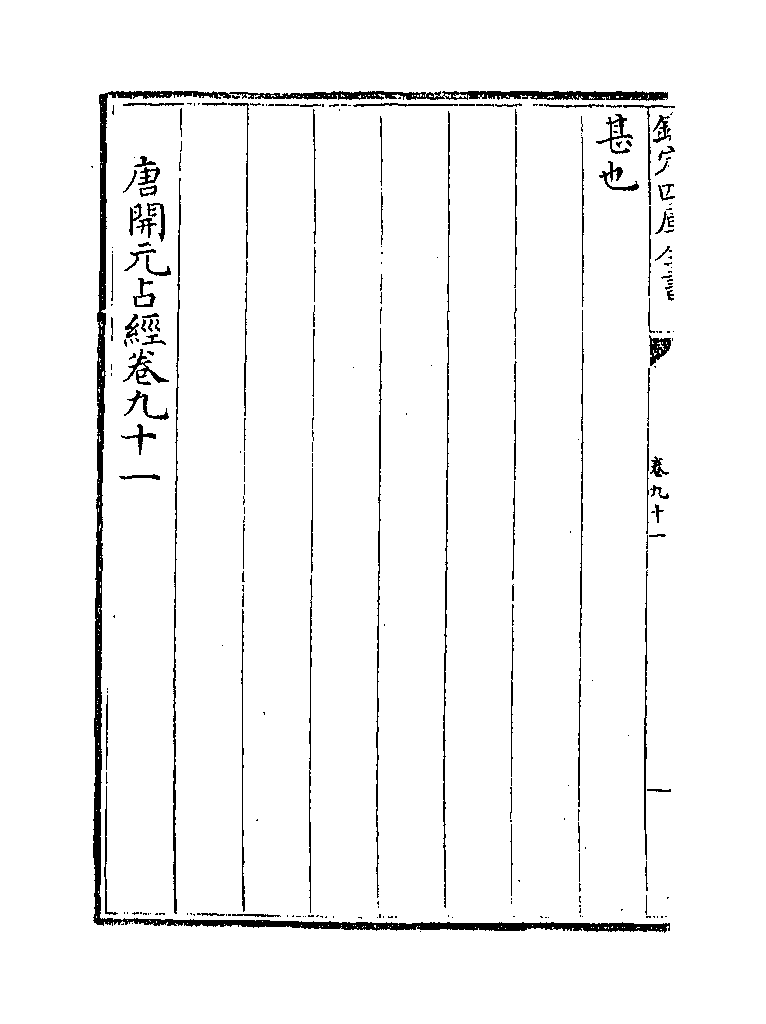 欽定四庫全書
卷九十一
甚也
唐開元占經卷九十一